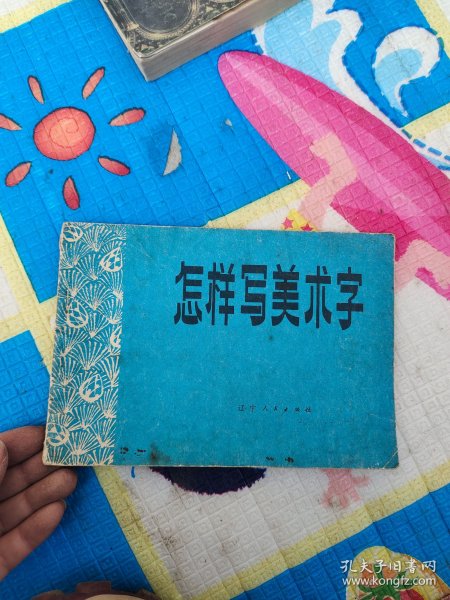 怎样写美术字
辽宁人民出版社
孔夫子旧书网
www.kongfz.com